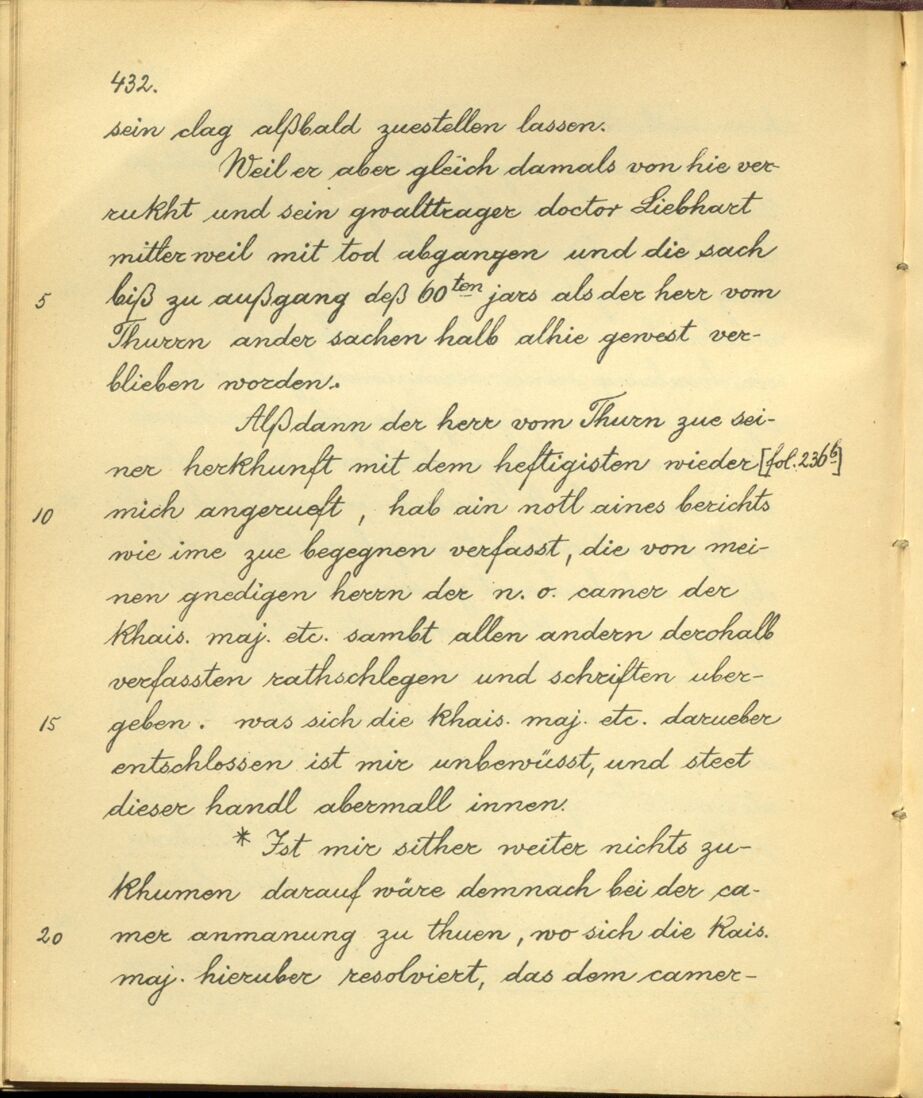 432.
sein clag alßbald zuestellen lassen.
Weil er aber gleich damals von hie ver-
rukht und sein gwalttrager doctor Liebhart
mitler weil mit tod abgangen und die sach
5 biß zu außgang deß 60ten jars als der herr vom
Thurrn ander sachen halb alhie gewest ver-
blieben worden.
Alßdann der herr vom Thurn zue sei-
ner herkhunft mit dem heftigisten wieder [fol. 236b]
10 mich angerueft, hab ain notl aines berichts
wie ime zue begegnen verfasst, die von mei-
nen gnedigen herrn der n. o. camer der
khais. maj. etc. sambt allen andern derohalb
verfassten rathschlegen und schriften uber-
15 geben. was sich die khais. maj. etc. darueber
entschlossen ist mir unbewüsst, und steet
dieser handl abermall innen.
* Ist mir sither weiter nichts zu-
khumen darauf wäre demnach bei der ca-
20 mer anmanung zu thuen, wo sich die kais.
maj. hieruber resolviert, das dem camer-